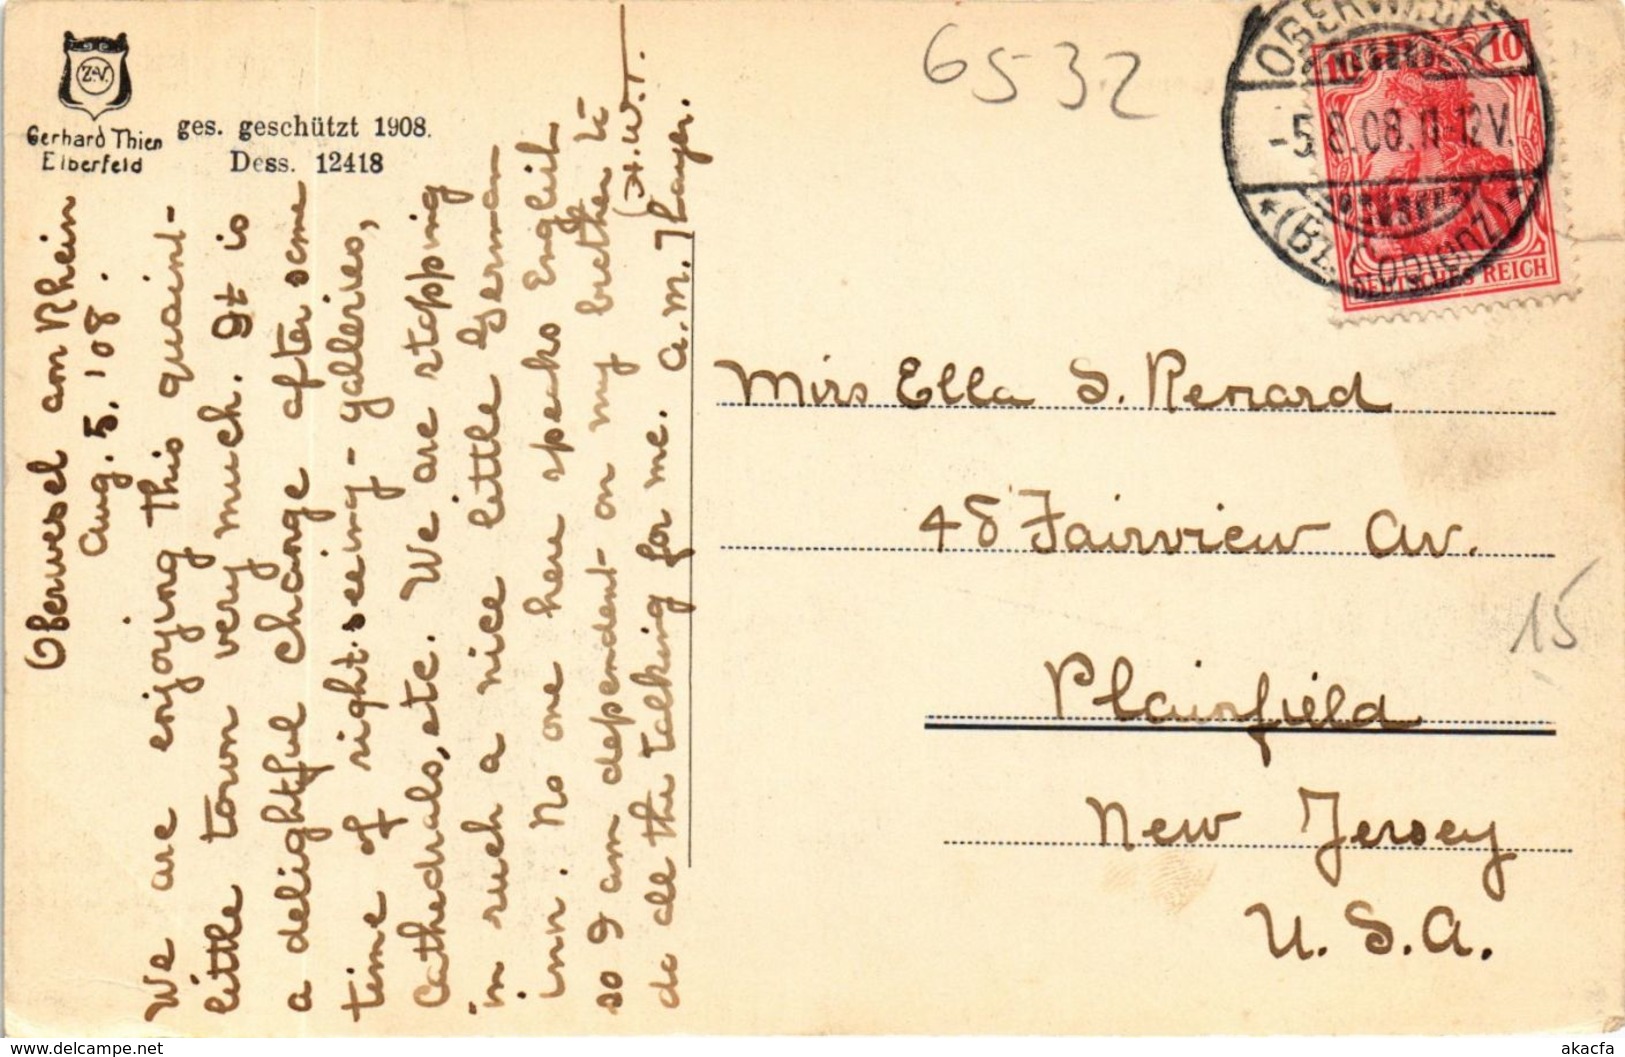 Z.V.
Gerhard Thien
Elberfeld
ges. geschützt 1908.
Dess. 12418
Oberwesel am Rhein
Aug. 5, '08.
We are enjoying this quaint-
little town very much. It is
a delightful change after some
time of sight-seeing - galleries,
Cathedrals, etc. We are stopping
in such a nice little German
inn. No one here speaks English
so I am dependent on my brother to
do all the talking for me. A. M. Thayer.
(H.W.T.
6532
10 10
OBERWESEL
-5.8.08.11-12V.
*(Bz. Coblenz)*
DEUTSCHES REICH
Miss Ella S. Renard
48 Fairview Av.
Plainfield
New Jersey
U.S.A.
15
akacfa